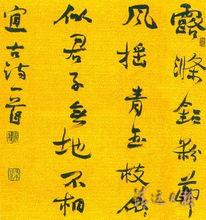 露滌鉛粉節
風搖青玉枝依
似君子無地不相
宜古诗一首